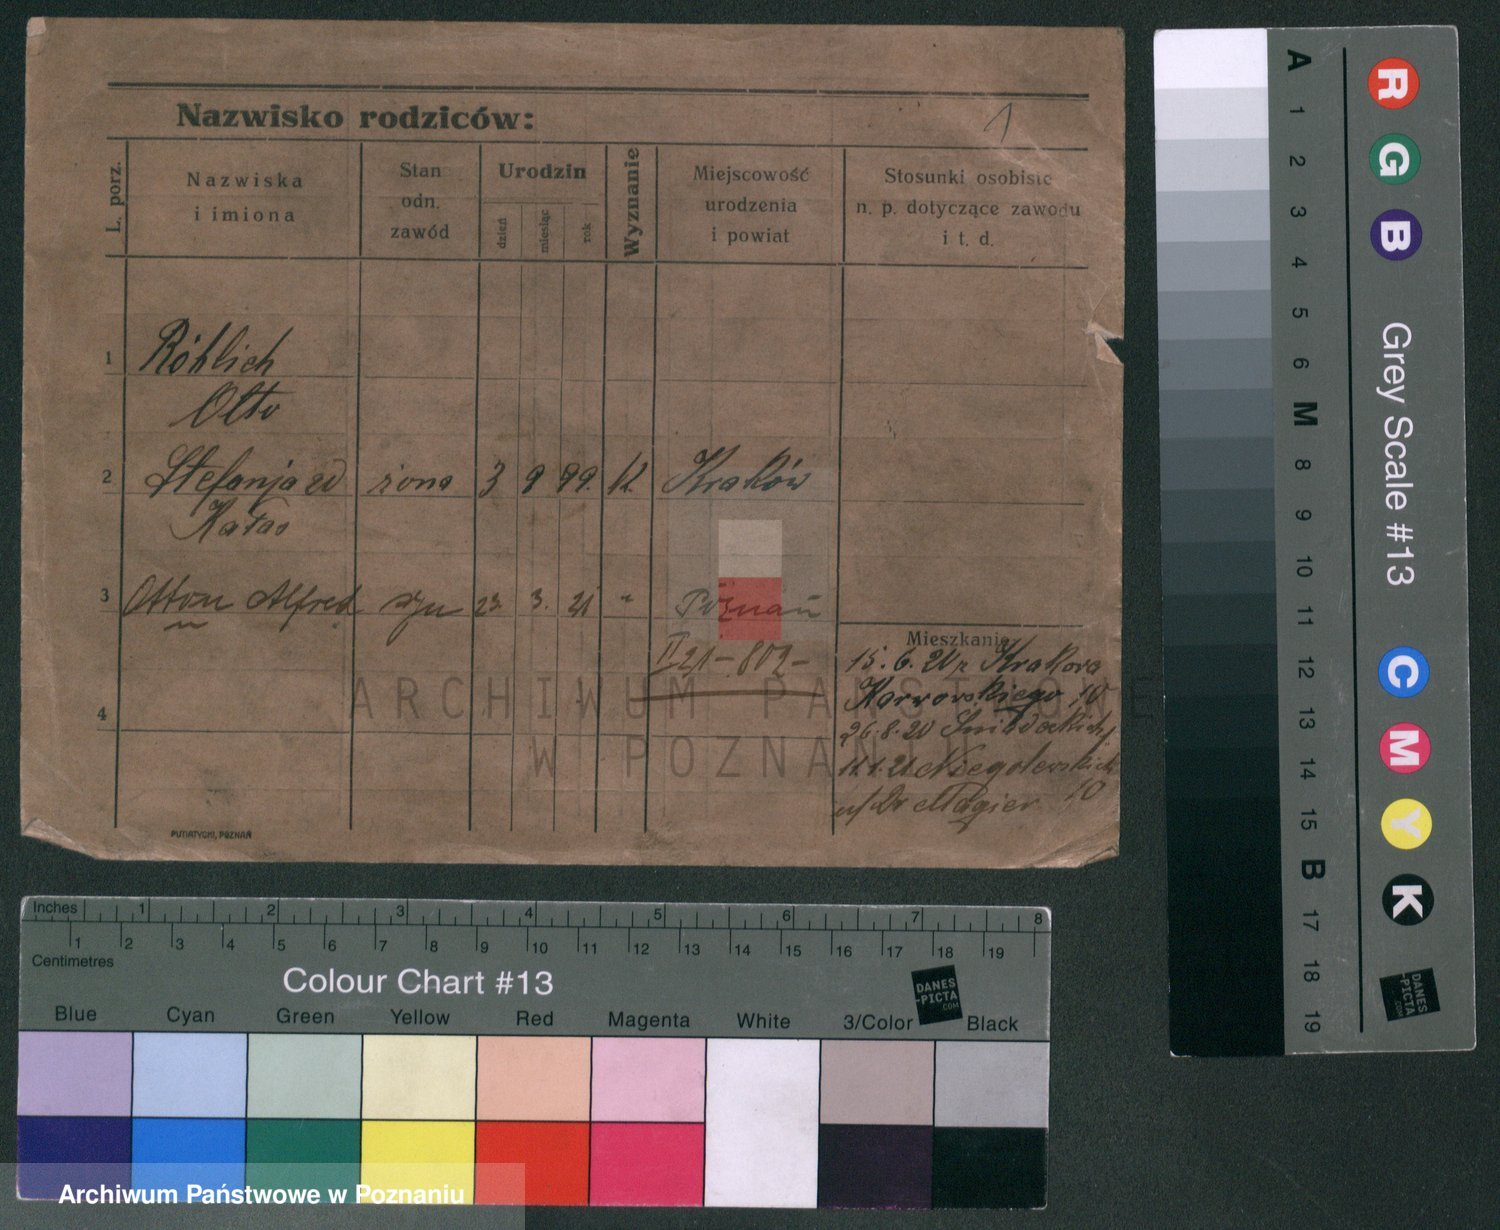 Nazwisko rodziców:
1
L. porz.
Nazwiska
i imiona
Stan
odn.
zawód
Urodzin
dzień
miesiąc
rok
Wyznanie
Miejscowość
urodzenia
i powiat
Stosunki osobiste
n. p. dotyczące zawodu
i t. d.
1 Röhlich
Otto
2 Stefanja żona 3 9 99. K Kraków
3 Otton Alfred syn 23. 3. 21 " Poznań
II 21 - 802 -
4
Mieszkanie
15. 6. 20 z Krakowa
Karwowskiego 10
26. 8. 20 Śniadeckich
11. 1. 21 Niegolewskich
10
u/ Dr Magier
PUTIATYCKI, POZNAŃ
ARCHIWUM PAŃSTWOWE
W POZNANIU
A 1 2 3 4 5 6 M 8 9 10 11 12 13 14 15 B 17 18 19
R G B
Grey Scale #13
C M Y K
DANES
-PICTA
.COM
Inches 1 2 3 4 5 6 7 8
1 2 3 4 5 6 7 8 9 10 11 12 13 14 15 16 17 18 19
Centimetres
Colour Chart #13
DANES
-PICTA
.COM
Blue Cyan Green Yellow Red Magenta White 3/Color Black
Archiwum Państwowe w Poznaniu